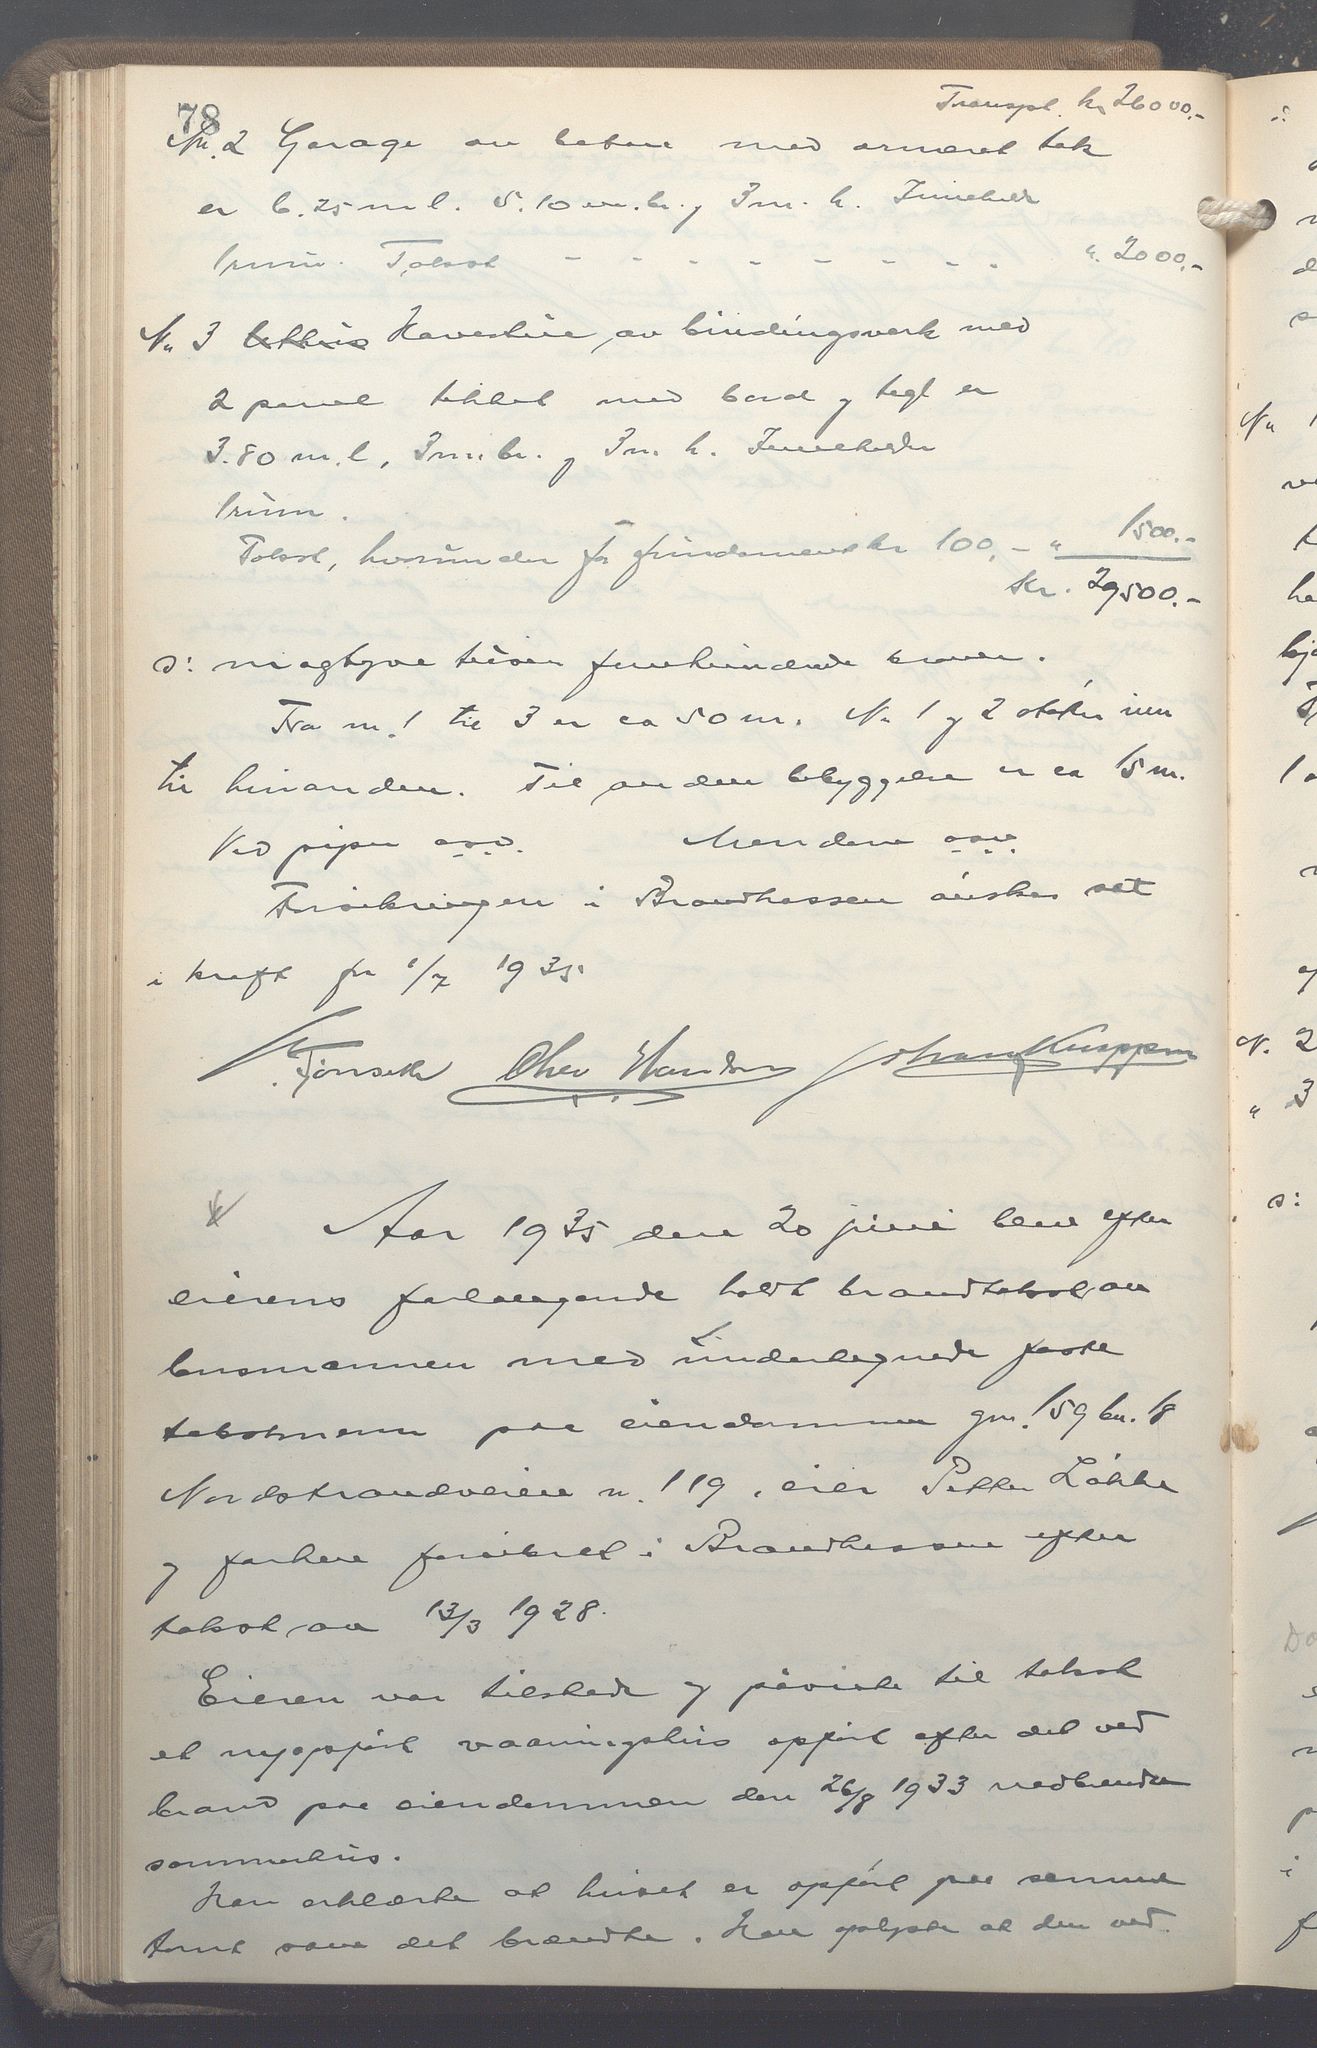 78
Transpt. kr. 26000.-
Nr. 2 Garage av beton med armeret tak
er 6.25 m l. 5.10 m. br. og 3 m. h. Inneholder
1 rum. Takst - - - - - - - - " 2000.-
Nr 3 Havestue av bindingsverk med
2 panel tekket med bord og tegl er
3.80 m. l, 3 m. br. og 3 m. h. Inneholder
1 rum.
Takst, hvorunder for fundament kr 100,- " 1500.-
Kr. 29500.-
ɔ: niogtyve tusen femhundrede kroner.
Fra nr. 1 til 3 er ca 50 m. Nr 1 og 2 støter inn
til hinanden. Til anden bebyggelse er ca 15 m.
Ved piper osv. Mændene osv.
Forsikringen i Brandkassen ønskes sat
i kraft fra 1/7 1935.
Olav Johan
Aar 1935 den 20 juni blev efter
eierens forlangende holdt brandtakst av
lensmannen med undertegnede faste
takstmenn paa eiendommen gnr. 159 bnr. 18
Nordstrandveien nr. 119, eier Petter Løkke
og forhen forsikret i Brandkassen efter
takst av 13/3 1928.
Eieren var tilstede og påviste til takst
et nyopført vaaningshus opført efter det ved
brand paa eiendommen den 26/8 1933 nedbrendte
sommerhus.
Han erklærte at huset er opført paa samme
tomt som det brændte. Han oplyste at den ved